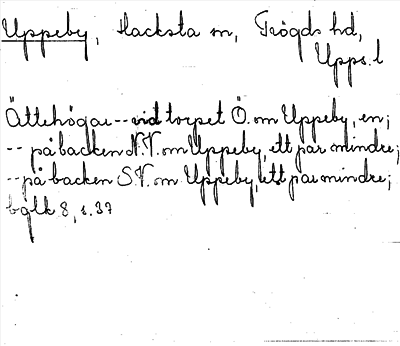 Uppeby, Hacksta sn, Trögds hd,
Upps. l
Ättehögar -- vid torpet Ö. om Uppeby, en;
-- på backen N.V. om Uppeby, ett par mindre;
-- på backen S.V. om Uppeby, ett par mindre;
bglk 8, s. 37